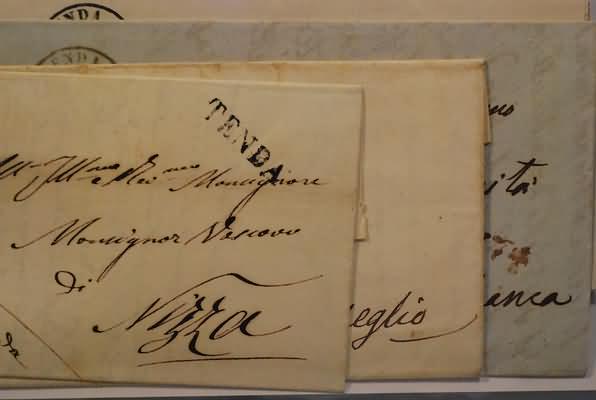 ENDA
ENDA
TENDA
All' Ill.mo e Rev.mo Monsignore
Monsignor Vescovo
di
Nizza
da
eglio
ità
anca